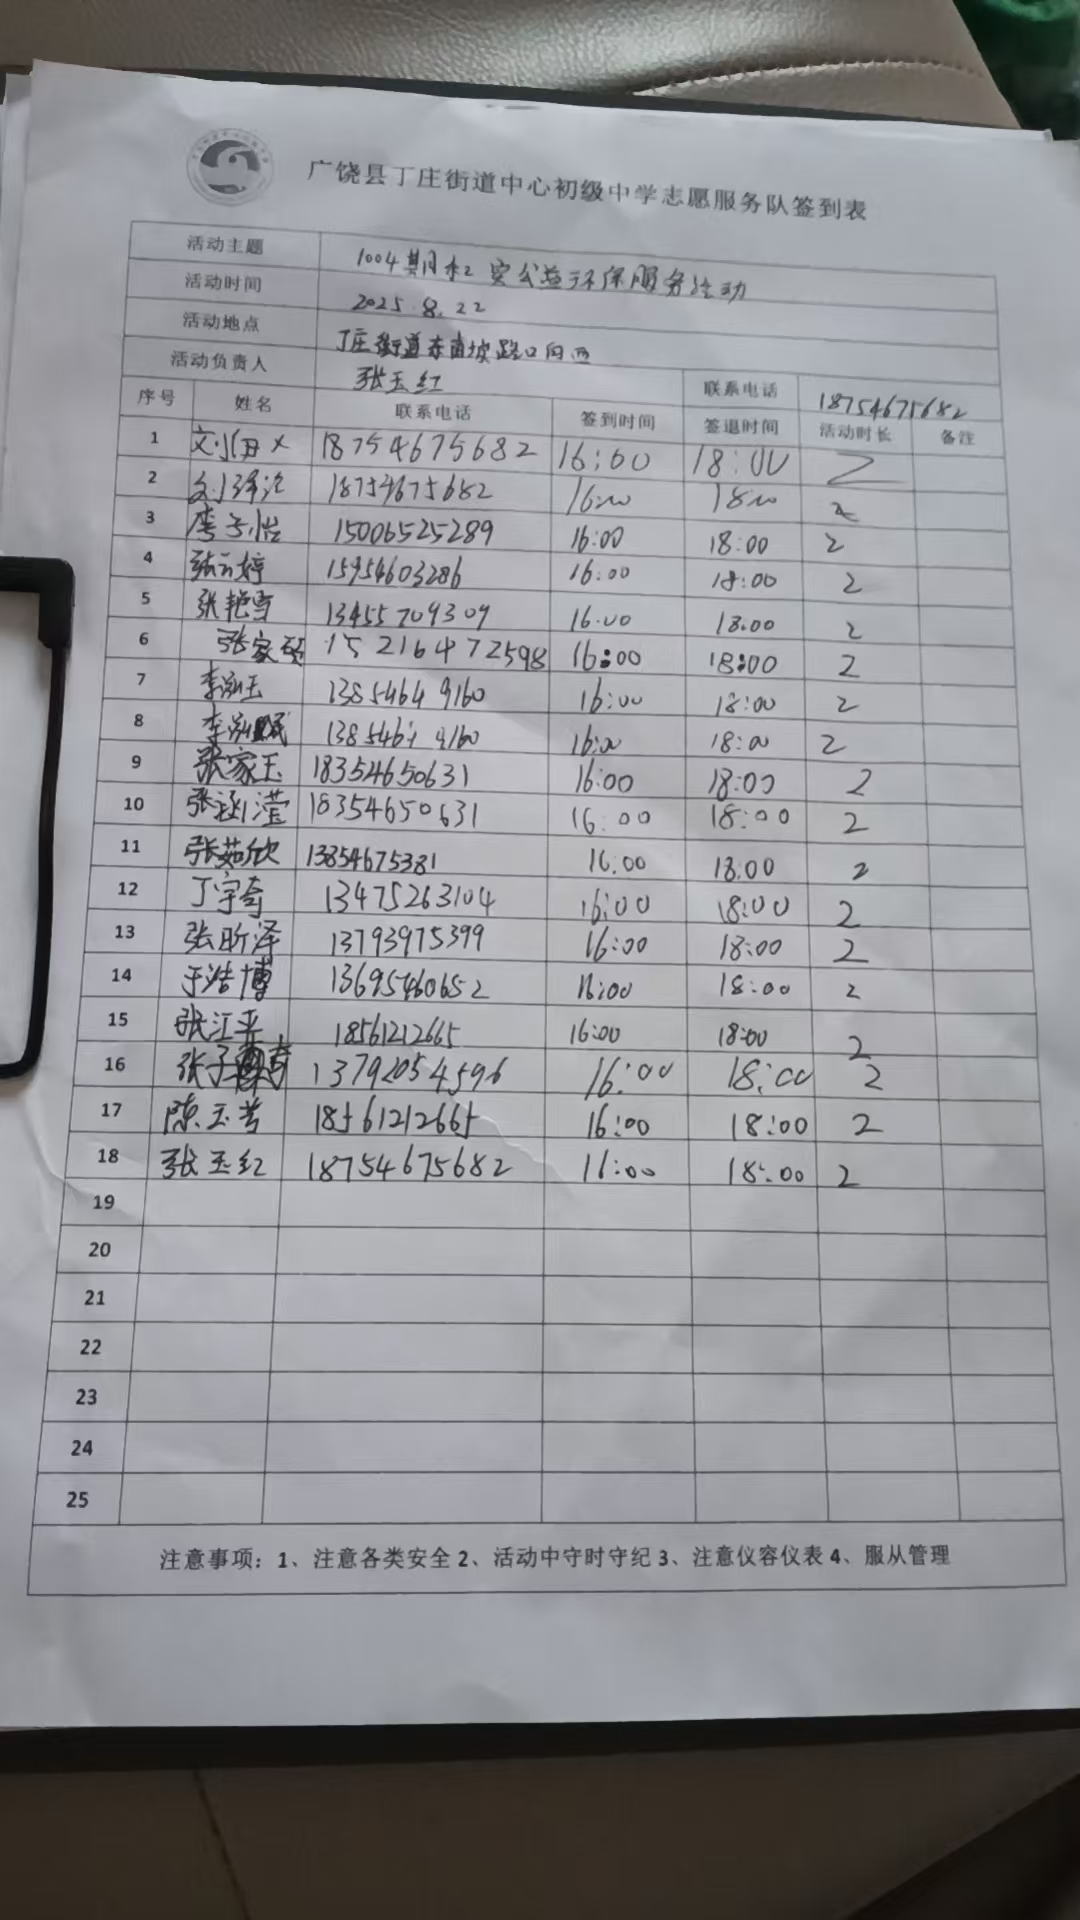 广饶县丁庄街道中心初级中学志愿服务队签到表
活动主题 1004期红安公益环保服务活动
活动时间 2025.8.22
活动地点 丁庄街道东南坡路口向西
活动负责人 张玉红 联系电话 18754675682
序号 姓名 联系电话 签到时间 签退时间 活动时长 备注
1 刘 18754675682 16:00 18:00 2
2 刘泽 18754675682 16:00 18:00 2
3 李子怡 15006525289 16:00 18:00 2
4 张云婷 15954603286 16:00 18:00 2
5 张艳雪 13455709309 16:00 18:00 2
6 张家硕 15216472598 16:00 18:00 2
7 李泓玉 13854649160 16:00 18:00 2
8 李泓 13854649160 16:00 18:00 2
9 张家玉 18354650631 16:00 18:00 2
10 张涵滢 18354650631 16:00 18:00 2
11 张茹欣 13854675381 16:00 18:00 2
12 丁宇奇 13475263104 16:00 18:00 2
13 张昕泽 13793975399 16:00 18:00 2
14 于浩博 13695460652 16:00 18:00 2
15 张江平 18561212665 16:00 18:00 2
16 张子 13792054596 16:00 18:00 2
17 陈玉芳 18561212665 16:00 18:00 2
18 张玉红 18754675682 16:00 18:00 2
19
20
21
22
23
24
25
注意事项：1、注意各类安全 2、活动中守时守纪 3、注意仪容仪表 4、服从管理